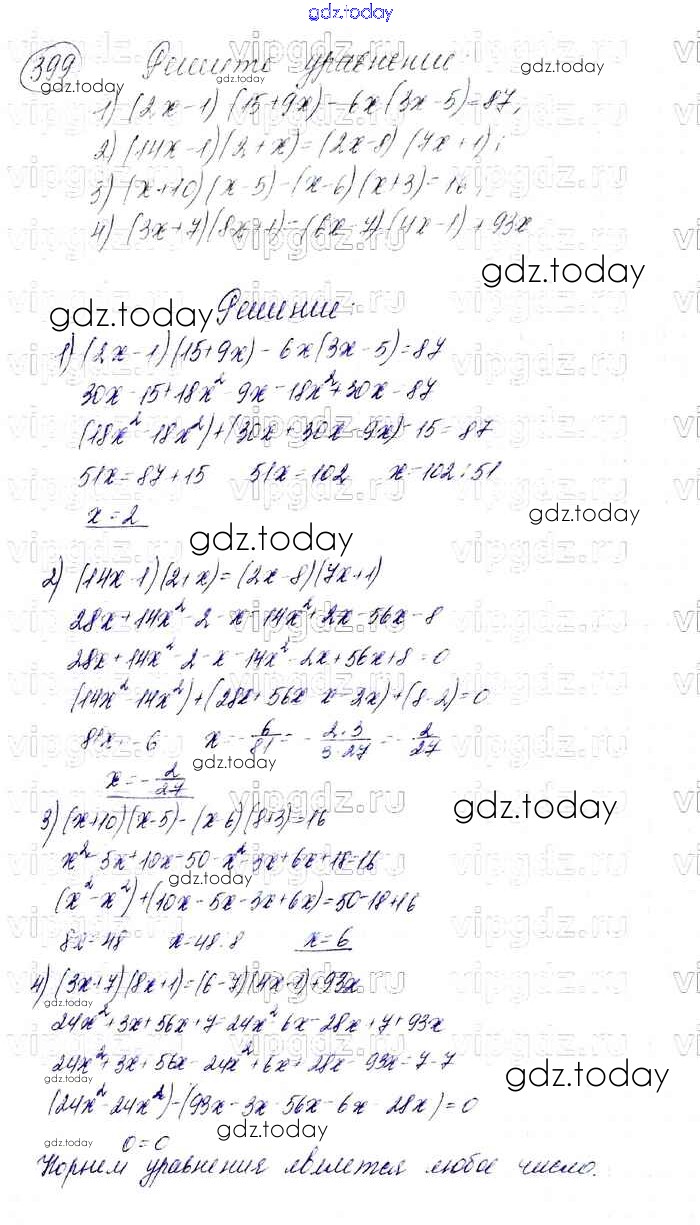 gdz.today
399 Решите уравнение:
1) (2x-1)(15+9x)-6x(3x-5)=87;
2) (14x-1)(2+x)=(2x-8)(7x+1);
3) (x+10)(x-5)-(x-6)(x+3)=16;
4) (3x+7)(8x+1)=(6x-7)(4x-1)+93x
gdz.today
gdz.today Решение:
1) (2x-1)(15+9x)-6x(3x-5)=87
30x-15+18x²-9x-18x²+30x=87
(18x²-18x²)+(30x+30x-9x)-15=87
51x=87+15 51x=102 x=102:51
x=2
gdz.today
gdz.today
2) (14x-1)(2+x)=(2x-8)(7x+1)
28x+14x²-2-x=14x²+2x-56x-8
28x+14x²-2-x-14x²-2x+56x+8=0
(14x²-14x²)+(28x+56x-x-2x)+(8-2)=0
81x=-6 x=-6/81=-2·3/3·27=-2/27
gdz.today
x=-2/27
gdz.today
3) (x+10)(x-5)-(x-6)(8+3)=16
x²-5x+10x-50-x²-3x+6x+18=16
gdz.today
(x²-x²)+(10x-5x-3x+6x)=50-18+16
8x=48 x=48:8 x=6
4) (3x+7)(8x+1)=(6-7)(4x-1)+93x
gdz.today
24x²+3x+56x+7=24x²-6x-28x+7+93x
24x²+3x+56x-24x²+6x+28x-93x=7-7
gdz.today
(24x²-24x²)-(93x-3x-56x-6x-28x)=0
gdz.today
gdz.today 0=0
Корнем уравнения является любое число.